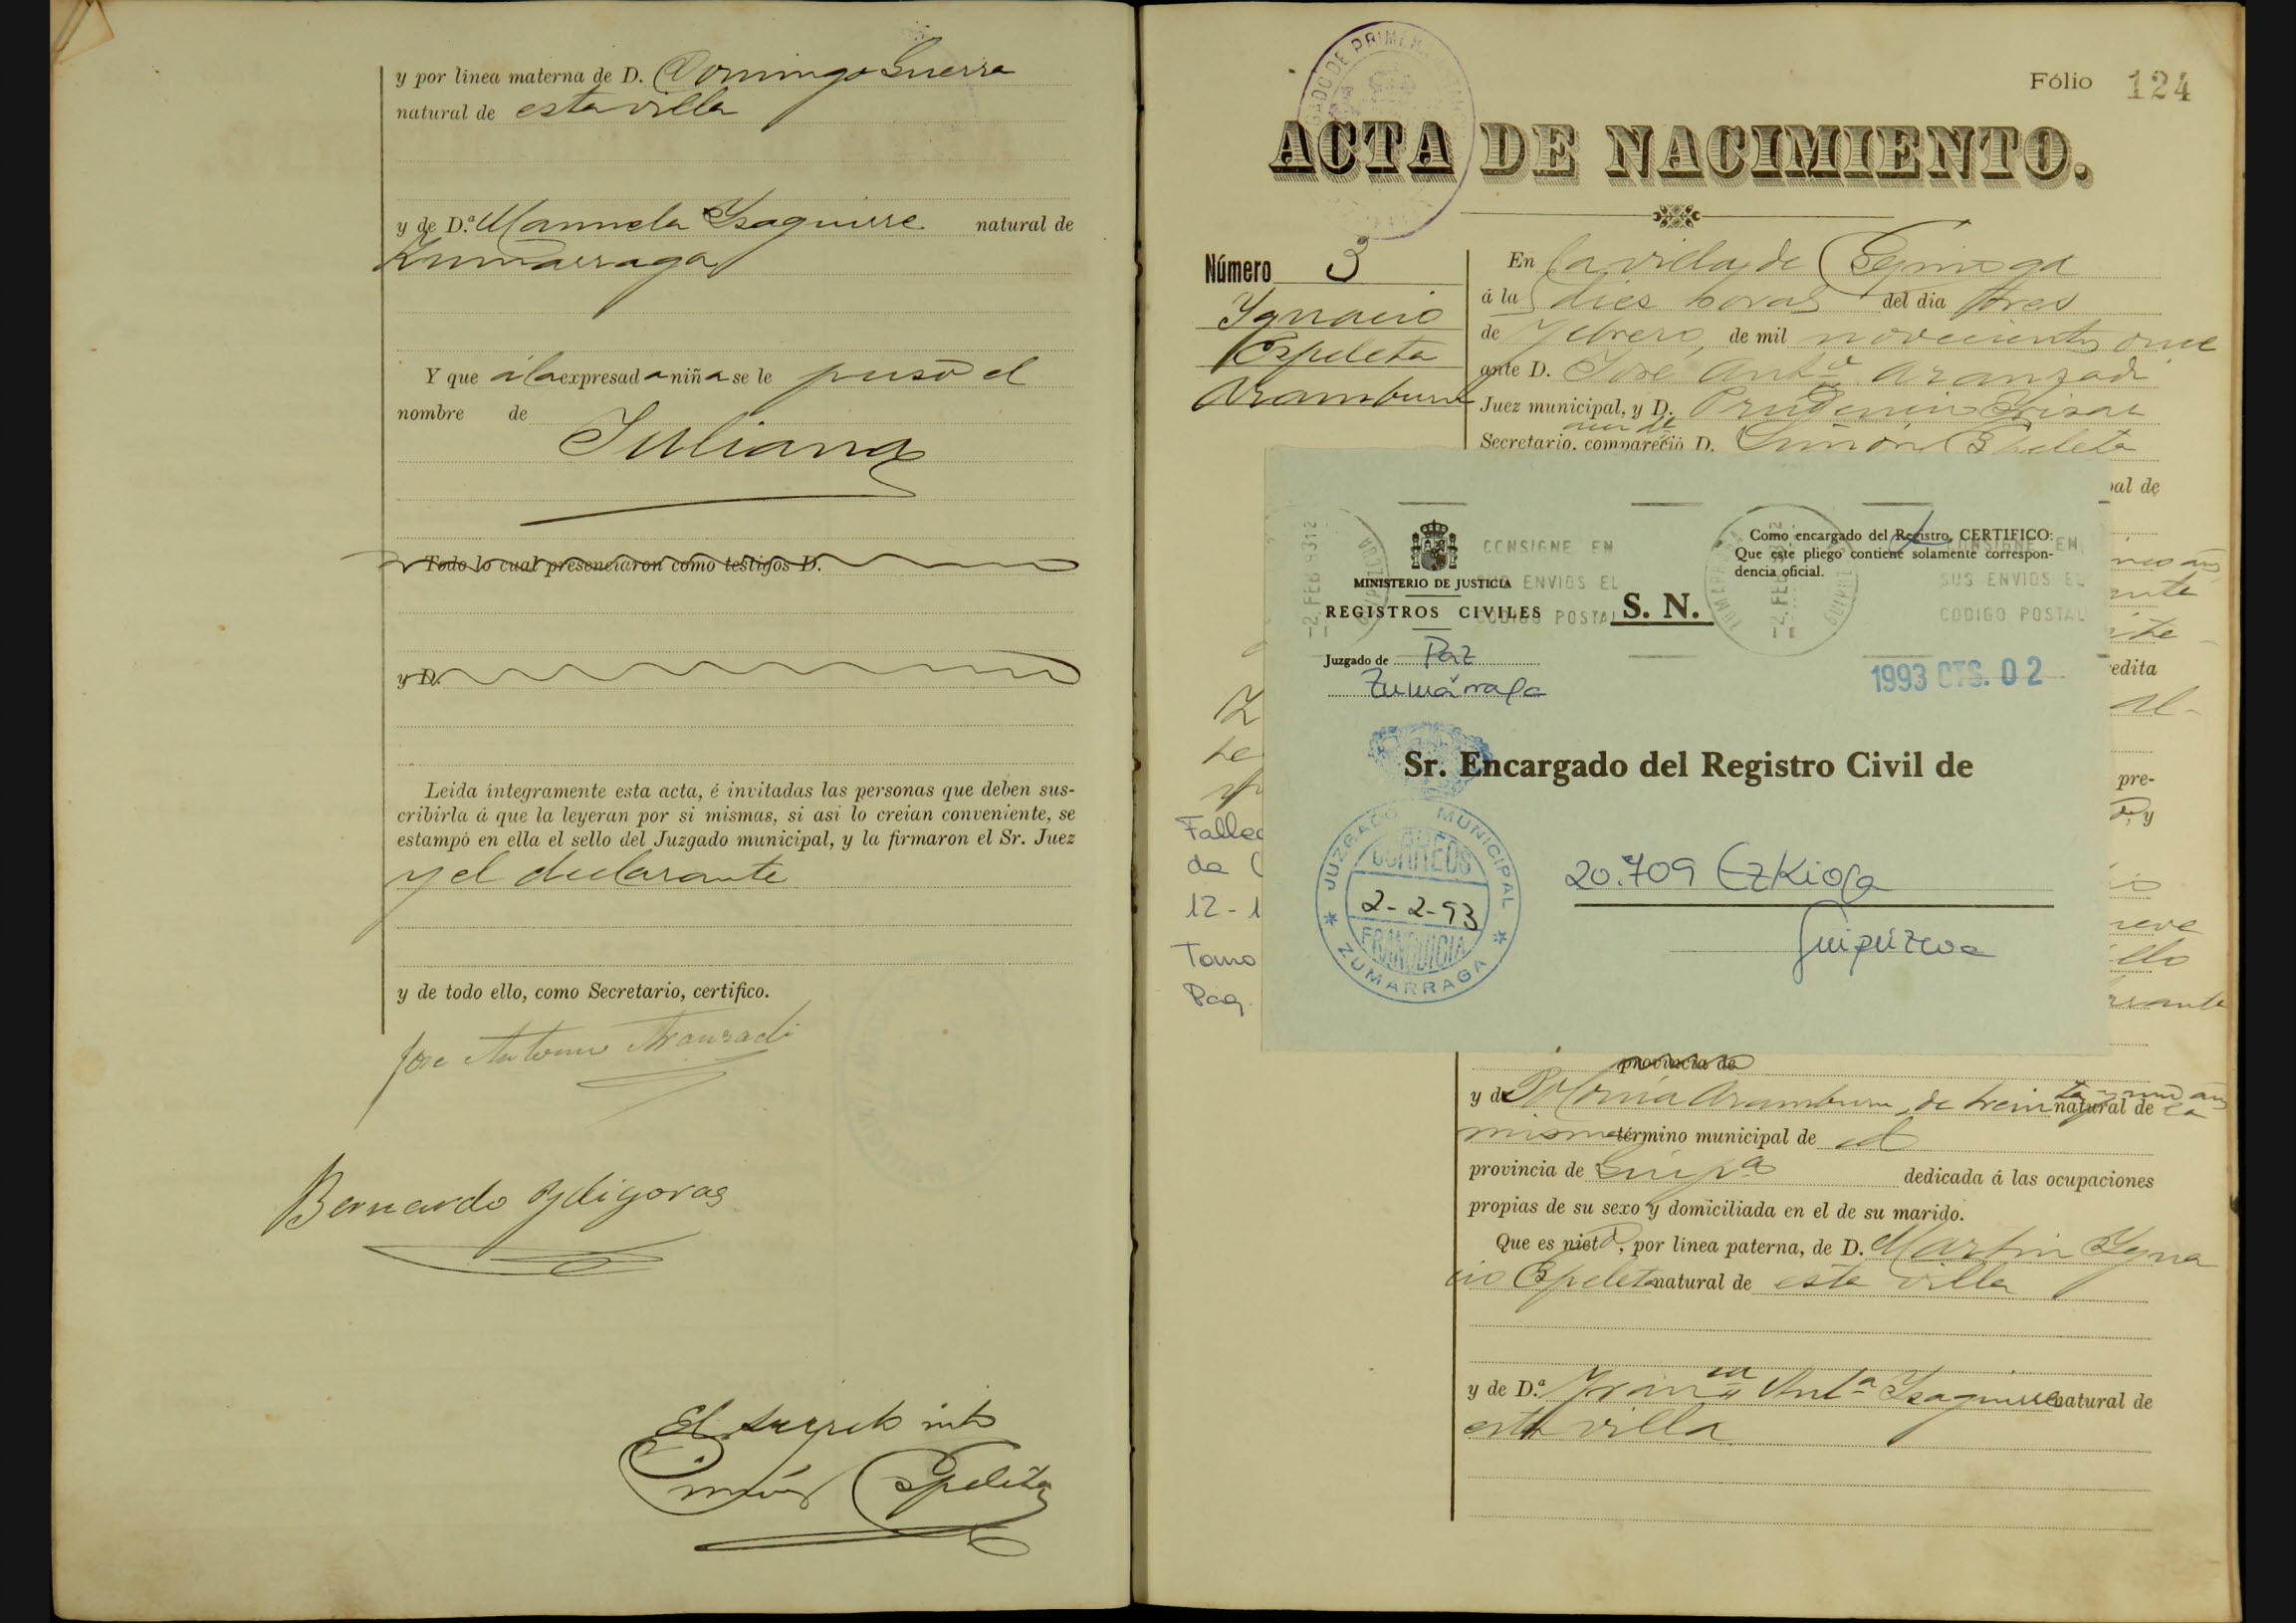 y por línea materna de D. Domingo Guerra
natural de esta villa
y de D.ª Manuela Ysaguirre natural de
Zumarraga
Y que á la expresada niña se le puso el
nombre de
Juliana
Todo lo cual presenciaron como testigos D.
y D.
Leida íntegramente esta acta, é invitadas las personas que deben sus-
cribirla á que la leyeran por si mismas, si asi lo creian conveniente, se
estampó en ella el sello del Juzgado municipal, y la firmaron el Sr. Juez
y el declarante
y de todo ello, como Secretario, certifico.
Jose Antonio Aranzadi
Bernardo Ydigoras
El secreto into
Simón Espeleta
Fólio 124
ACTA DE NACIMIENTO.
Número 3
Ygnacio
Espeleta
Aramburu
En la villa de Ezquioga
á la diez horas del dia tres
de Febrero, de mil novecientos once
ante D. José Antº Aranzadi
Juez municipal, y D. Prudencio Yrizar
Secretario, compareció D. Simón Espeleta
pal de
edita
pre-
y
Fallec
da
12 - 1
Tomo
Pag.
MINISTERIO DE JUSTICIA
REGISTROS CIVILES
S. N.
CONSIGNE EN
SUS ENVIOS EL
CODIGO POSTAL
Como encargado del Registro, CERTIFICO:
Que este pliego contiene solamente correspon-
dencia oficial.
CONSIGNE EN
SUS ENVIOS EL
CODIGO POSTAL
Juzgado de Paz
Zumárraga
1993 OTS. 02
Sr. Encargado del Registro Civil de
JUZGADO MUNICIPAL
CORREOS
2-2-93
FRANQUICIA
ZUMARRAGA
20.709 Ezkioga
Guipúzcoa
provincia de
y de Dª María Aramburu, de treinta y un añ natural de la
misma término municipal de id
provincia de Guipª dedicada á las ocupaciones
propias de su sexo y domiciliada en el de su marido.
Que es nieto, por línea paterna, de D. Martin Ygna
cio Espeleta natural de esta villa
y de D.ª Franca Antª Ysaguirre natural de
esta villa